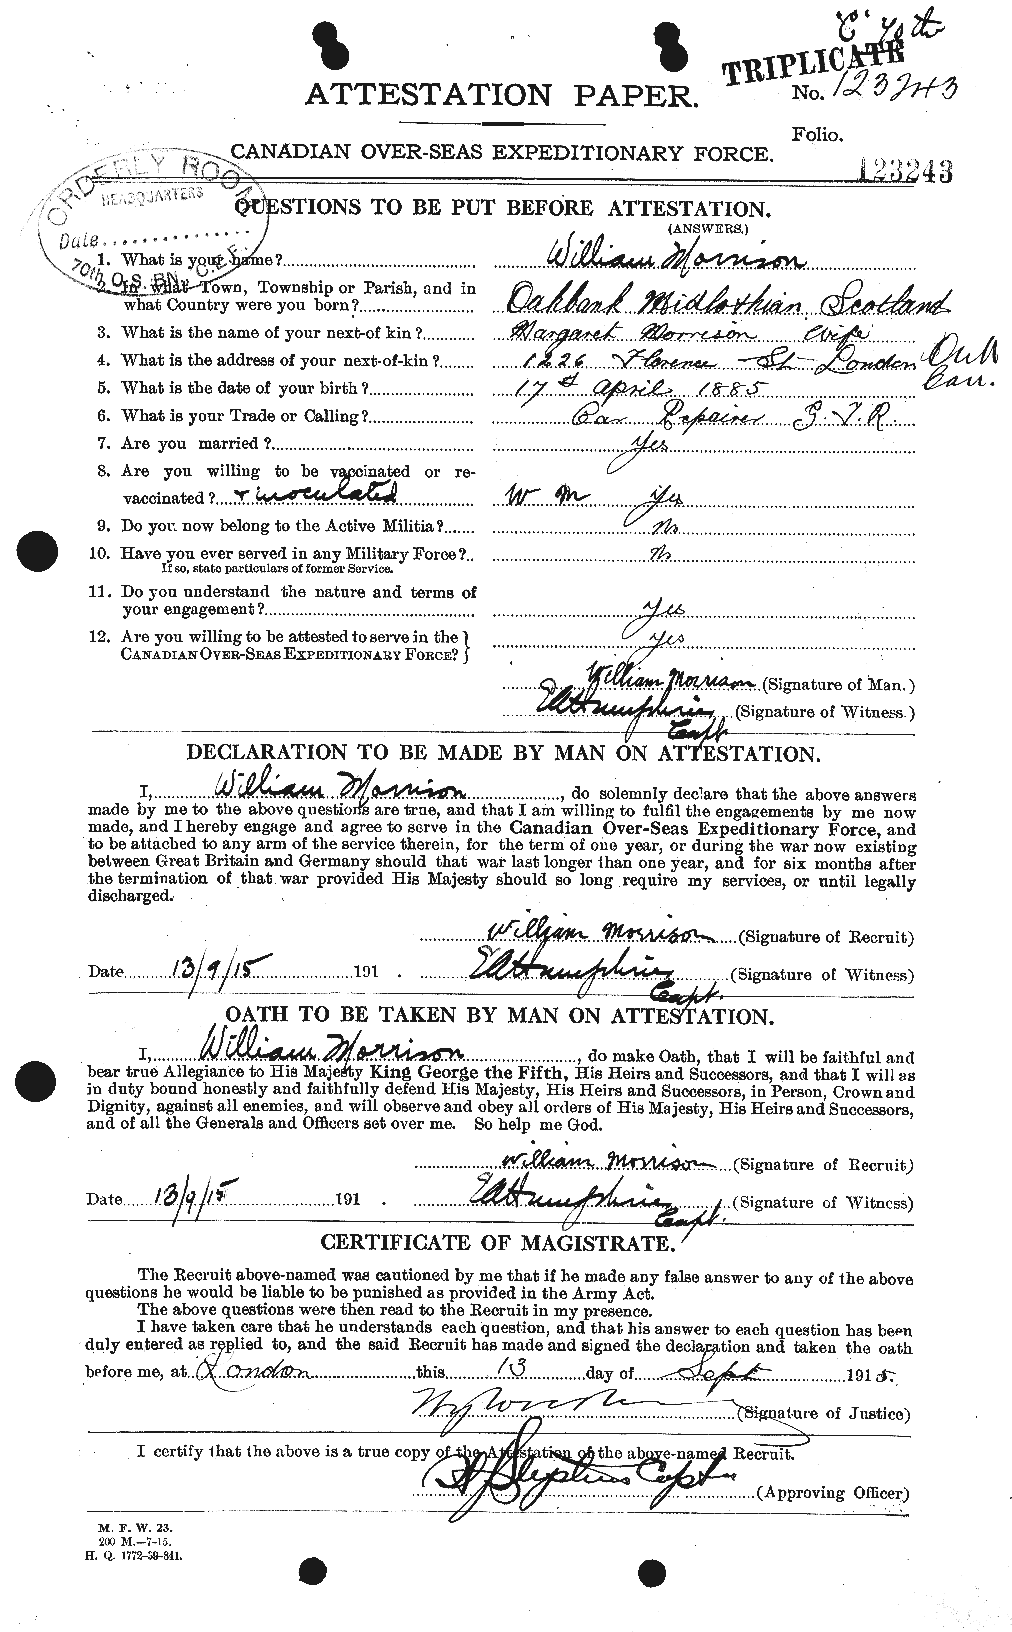 "C" 70th
TRIPLICATE
ATTESTATION PAPER.
No. 123243
Folio.
CANADIAN OVER-SEAS EXPEDITIONARY FORCE.
123243
ORDERLY ROOM
HEADQUARTERS
Date...............
70th O.S. BN. C.E.F.
QUESTIONS TO BE PUT BEFORE ATTESTATION.
(ANSWERS.)
1. What is your name? William Morrison
2. In what Town, Township or Parish, and in
what Country were you born? Oakbank Midlothian Scotland
3. What is the name of your next-of kin? Margaret Morrison wife
4. What is the address of your next-of-kin? 1226 Florence St London Ont
Can.
5. What is the date of your birth? 17th April 1885
6. What is your Trade or Calling? Car Repairer G.T.R.
7. Are you married? Yes
8. Are you willing to be vaccinated or re-
vaccinated? + inoculated W M Yes
9. Do you now belong to the Active Militia? No
10. Have you ever served in any Military Force? No
If so, state particulars of former Service.
11. Do you understand the nature and terms of
your engagement? Yes
12. Are you willing to be attested to serve in the }
CANADIAN OVER-SEAS EXPEDITIONARY FORCE? } Yes
William Morrison (Signature of Man.)
E A Humphries (Signature of Witness.)
Capt
DECLARATION TO BE MADE BY MAN ON ATTESTATION.
I, William Morrison, do solemnly declare that the above answers
made by me to the above questions are true, and that I am willing to fulfil the engagements by me now
made, and I hereby engage and agree to serve in the Canadian Over-Seas Expeditionary Force, and
to be attached to any arm of the service therein, for the term of one year, or during the war now existing
between Great Britain and Germany should that war last longer than one year, and for six months after
the termination of that war provided His Majesty should so long require my services, or until legally
discharged.
William Morrison (Signature of Recruit)
Date 13/9/15 191 . E A Humphries (Signature of Witness)
Capt.
OATH TO BE TAKEN BY MAN ON ATTESTATION.
I, William Morrison, do make Oath, that I will be faithful and
bear true Allegiance to His Majesty King George the Fifth, His Heirs and Successors, and that I will as
in duty bound honestly and faithfully defend His Majesty, His Heirs and Successors, in Person, Crown and
Dignity, against all enemies, and will observe and obey all orders of His Majesty, His Heirs and Successors,
and of all the Generals and Officers set over me. So help me God.
William Morrison (Signature of Recruit)
Date 13/9/15 191 . E A Humphries (Signature of Witness)
Capt.
CERTIFICATE OF MAGISTRATE.
The Recruit above-named was cautioned by me that if he made any false answer to any of the above
questions he would be liable to be punished as provided in the Army Act.
The above questions were then read to the Recruit in my presence.
I have taken care that he understands each question, and that his answer to each question has been
duly entered as replied to, and the said Recruit has made and signed the declaration and taken the oath
before me, at London this 13 day of Sept 1915.
(Signature of Justice)
I certify that the above is a true copy of the Attestation of the above-named Recruit.
Stephens Capt (Approving Officer)
M. F. W. 23.
200 M.—7-15.
H. Q. 1772-39-841.